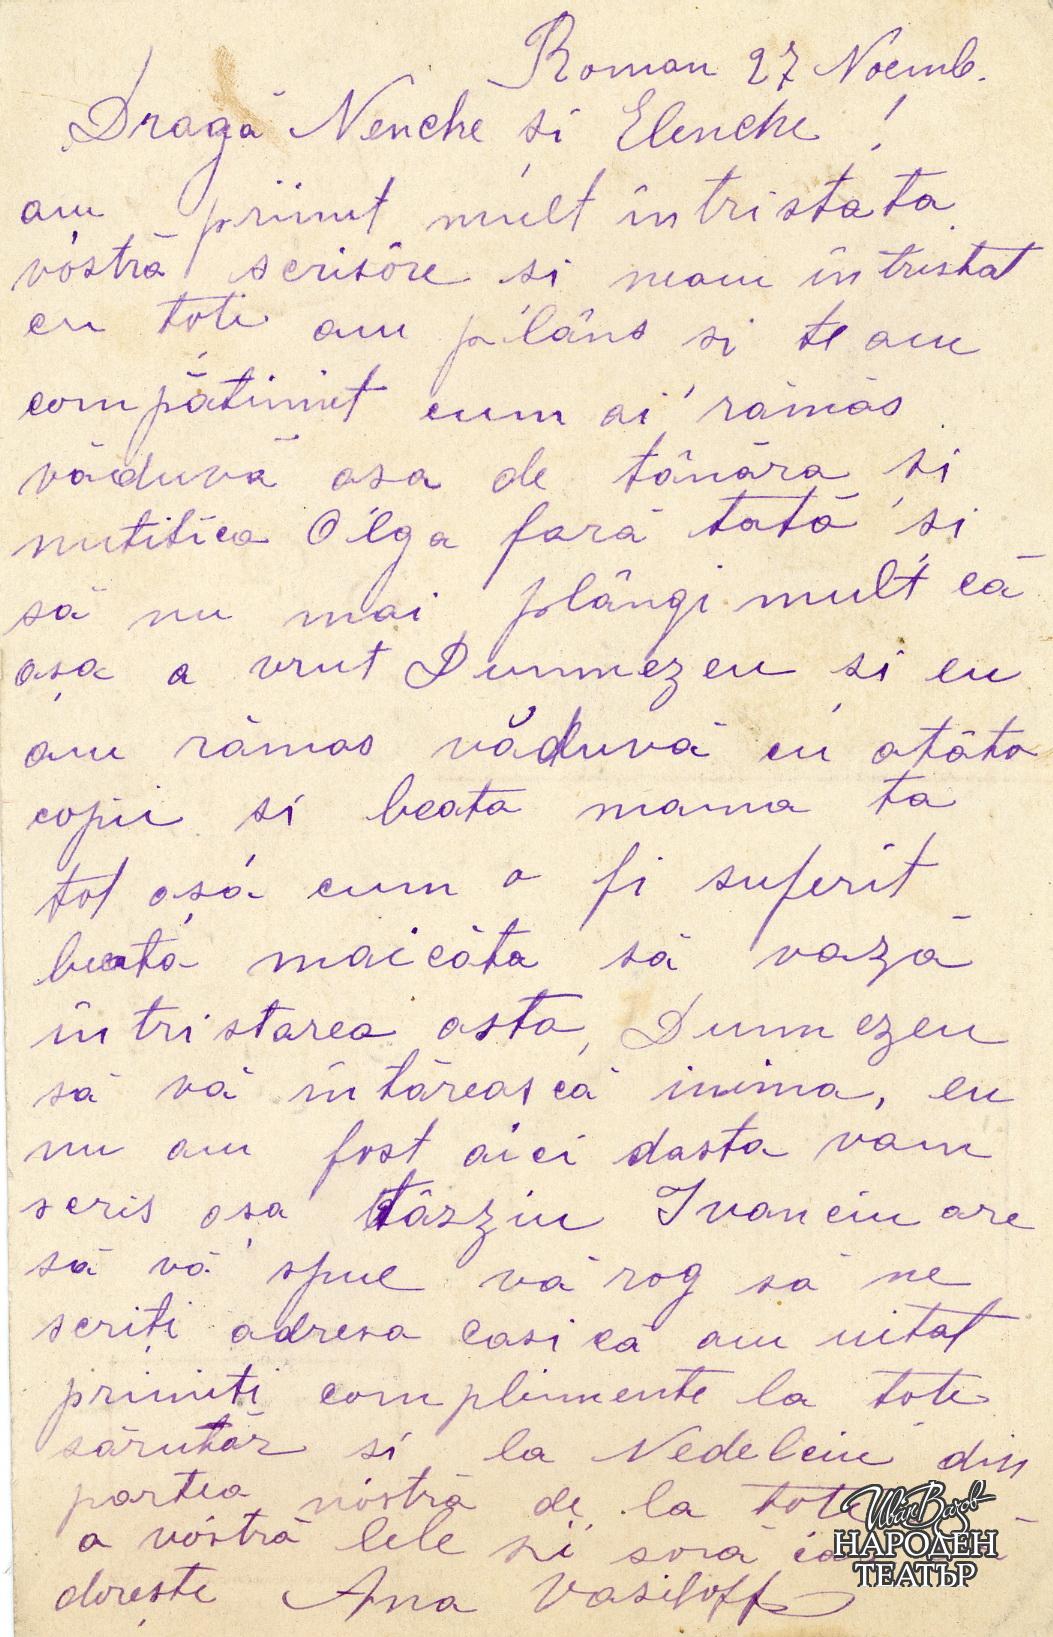 Roman 27 Noemb.
Dragă Nenche și Elenche!
am priimt mult întristata
vóstră scrisóre și neam întristat
cu toti am plâns si te am
compătimit cum ai rămas
văduvă asa de tânăra și
mititica Olga fară tată și
să nu mai plângi mult că
așa a vrut Dumnezeu și eu
am rămas văduvă cu atâta
copii si beata mama ta
tot așa cum o fi suferit
beata maicăta să vază
întristarea asta, Dumnezeu
să vă întărească inima, eu
nu am fost aici dasta vam
scris așa târziu Ivanciu are
să vă spue vă rog să ne
scriți adresa casi că am uitat
primiți complimente la toti
sărutăr si la Nedelciu din
partea nóstră de la toti
a vóstră lele și soră
dorește Ana Vasiloff
Иван Вазов
НАРОДЕН
ТЕАТЪР